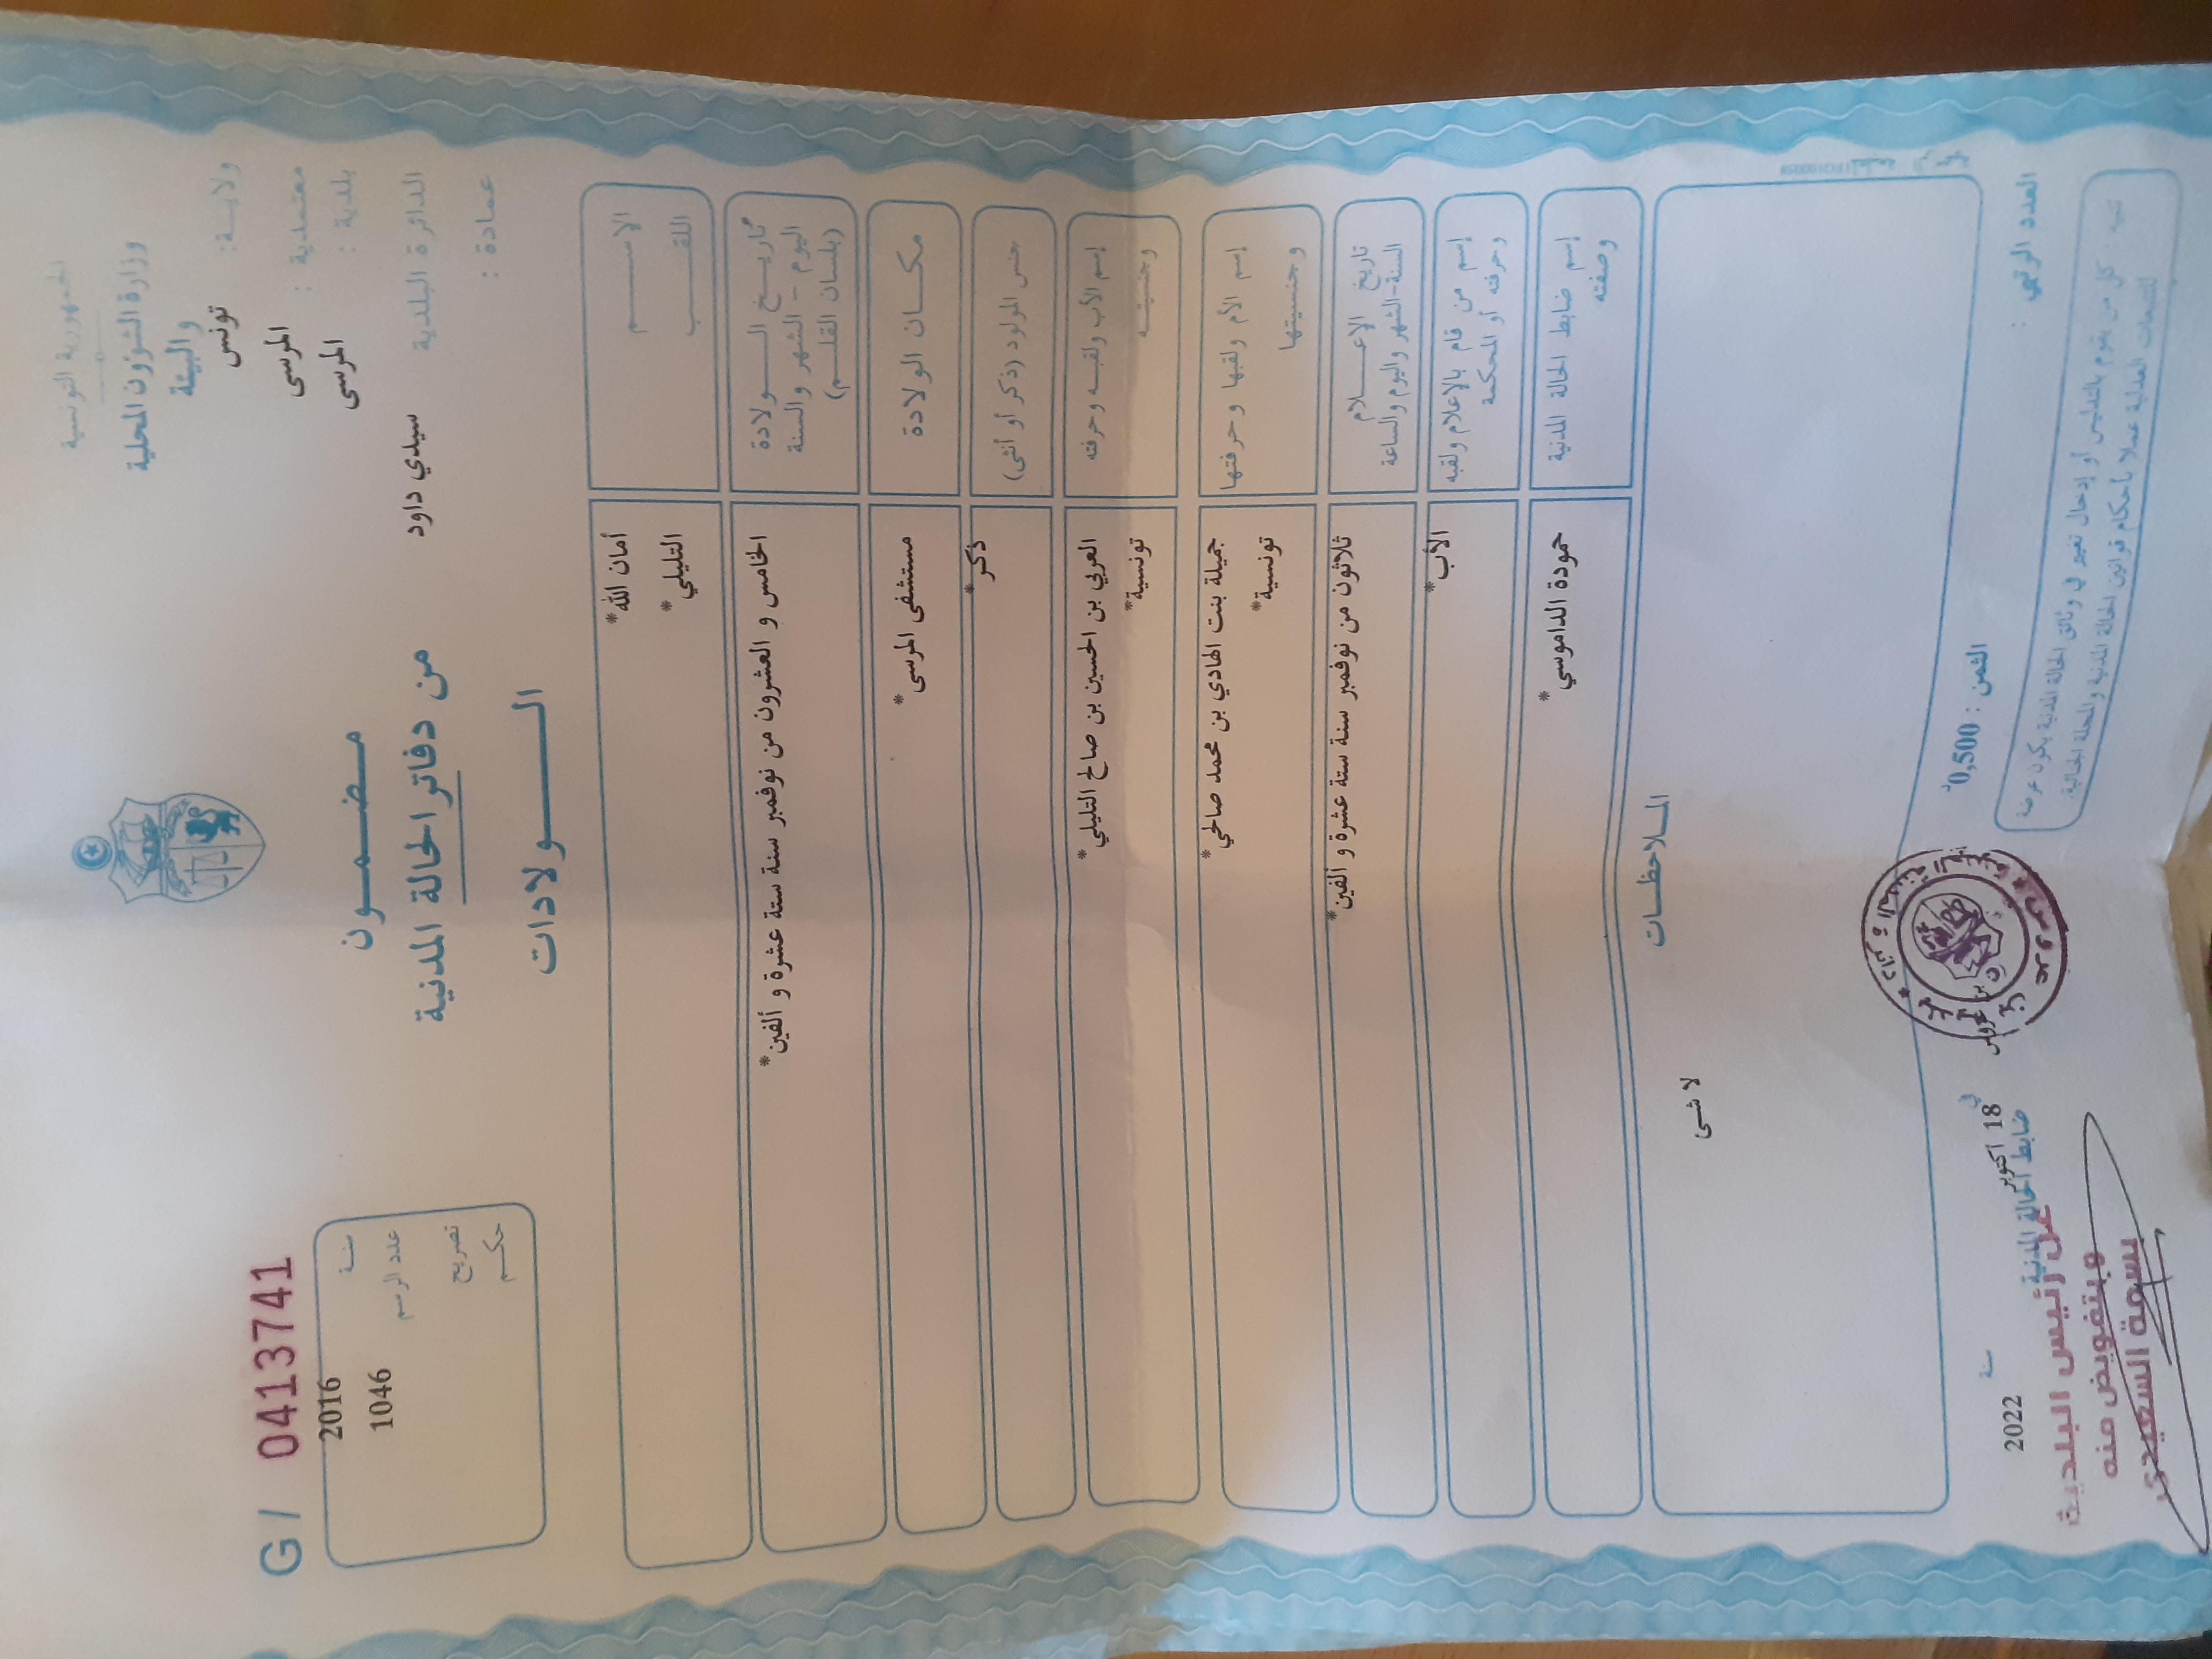 الجمهورية التونسية
وزارة الشؤون المحلية
والبيئة
ولايــة : تونس
معتمدية : المرسى
بلدية : المرسى
الدائرة البلدية سيدي داود
عمادة :
G / 0413741
سنة 2016
عدد الرسم 1046
تصريح
حكم
مضمون
من دفاتر الحالة المدنية
الــولادات
الاســم أمان الله*
اللقــب التليلي*
تاريــخ الــولادة الخامس و العشرون من نوفمبر سنة ستة عشرة و ألفين*
اليوم - الشهر والسنة
(بلسان القلــم)
مكــان الولادة مستشفى المرسى*
جنس المولود (ذكر أو أنثى) ذكر*
إسم الأب ولقبــه وحرفته العربي بن الحسين بن صالح التليلي*
وجنسيتــه تونسية*
إسم الأم ولقبها وحرفتها جميلة بنت الهادي بن محمد صالحي*
وجنسيتها تونسية*
تاريخ الإعــلام ثلاثون من نوفمبر سنة ستة عشرة و ألفين*
السنة-الشهر واليوم والساعة
إسم من قام بالإعلام ولقبه الأب*
وحرفته أو المحكمة
إسم ضابط الحالة المدنية حمودة الداموسي*
وصفته
المــلاحظــات
لا شئ
العدد الرتبي :
الثمن : 0,500د
في 18 اكتوبر سنة 2022
ضابط الحالة المدنية
عن رئيس البلدية
وبتفويض منه
بسمة السعيدي
تنبيه : كل من يقوم بالتدليس أو إدخال تغيير في وثائق الحالة المدنية يكون عرضة
للتتبعات العدلية عملا بأحكام قوانين الحالة المدنية والمجلة الجنائية.